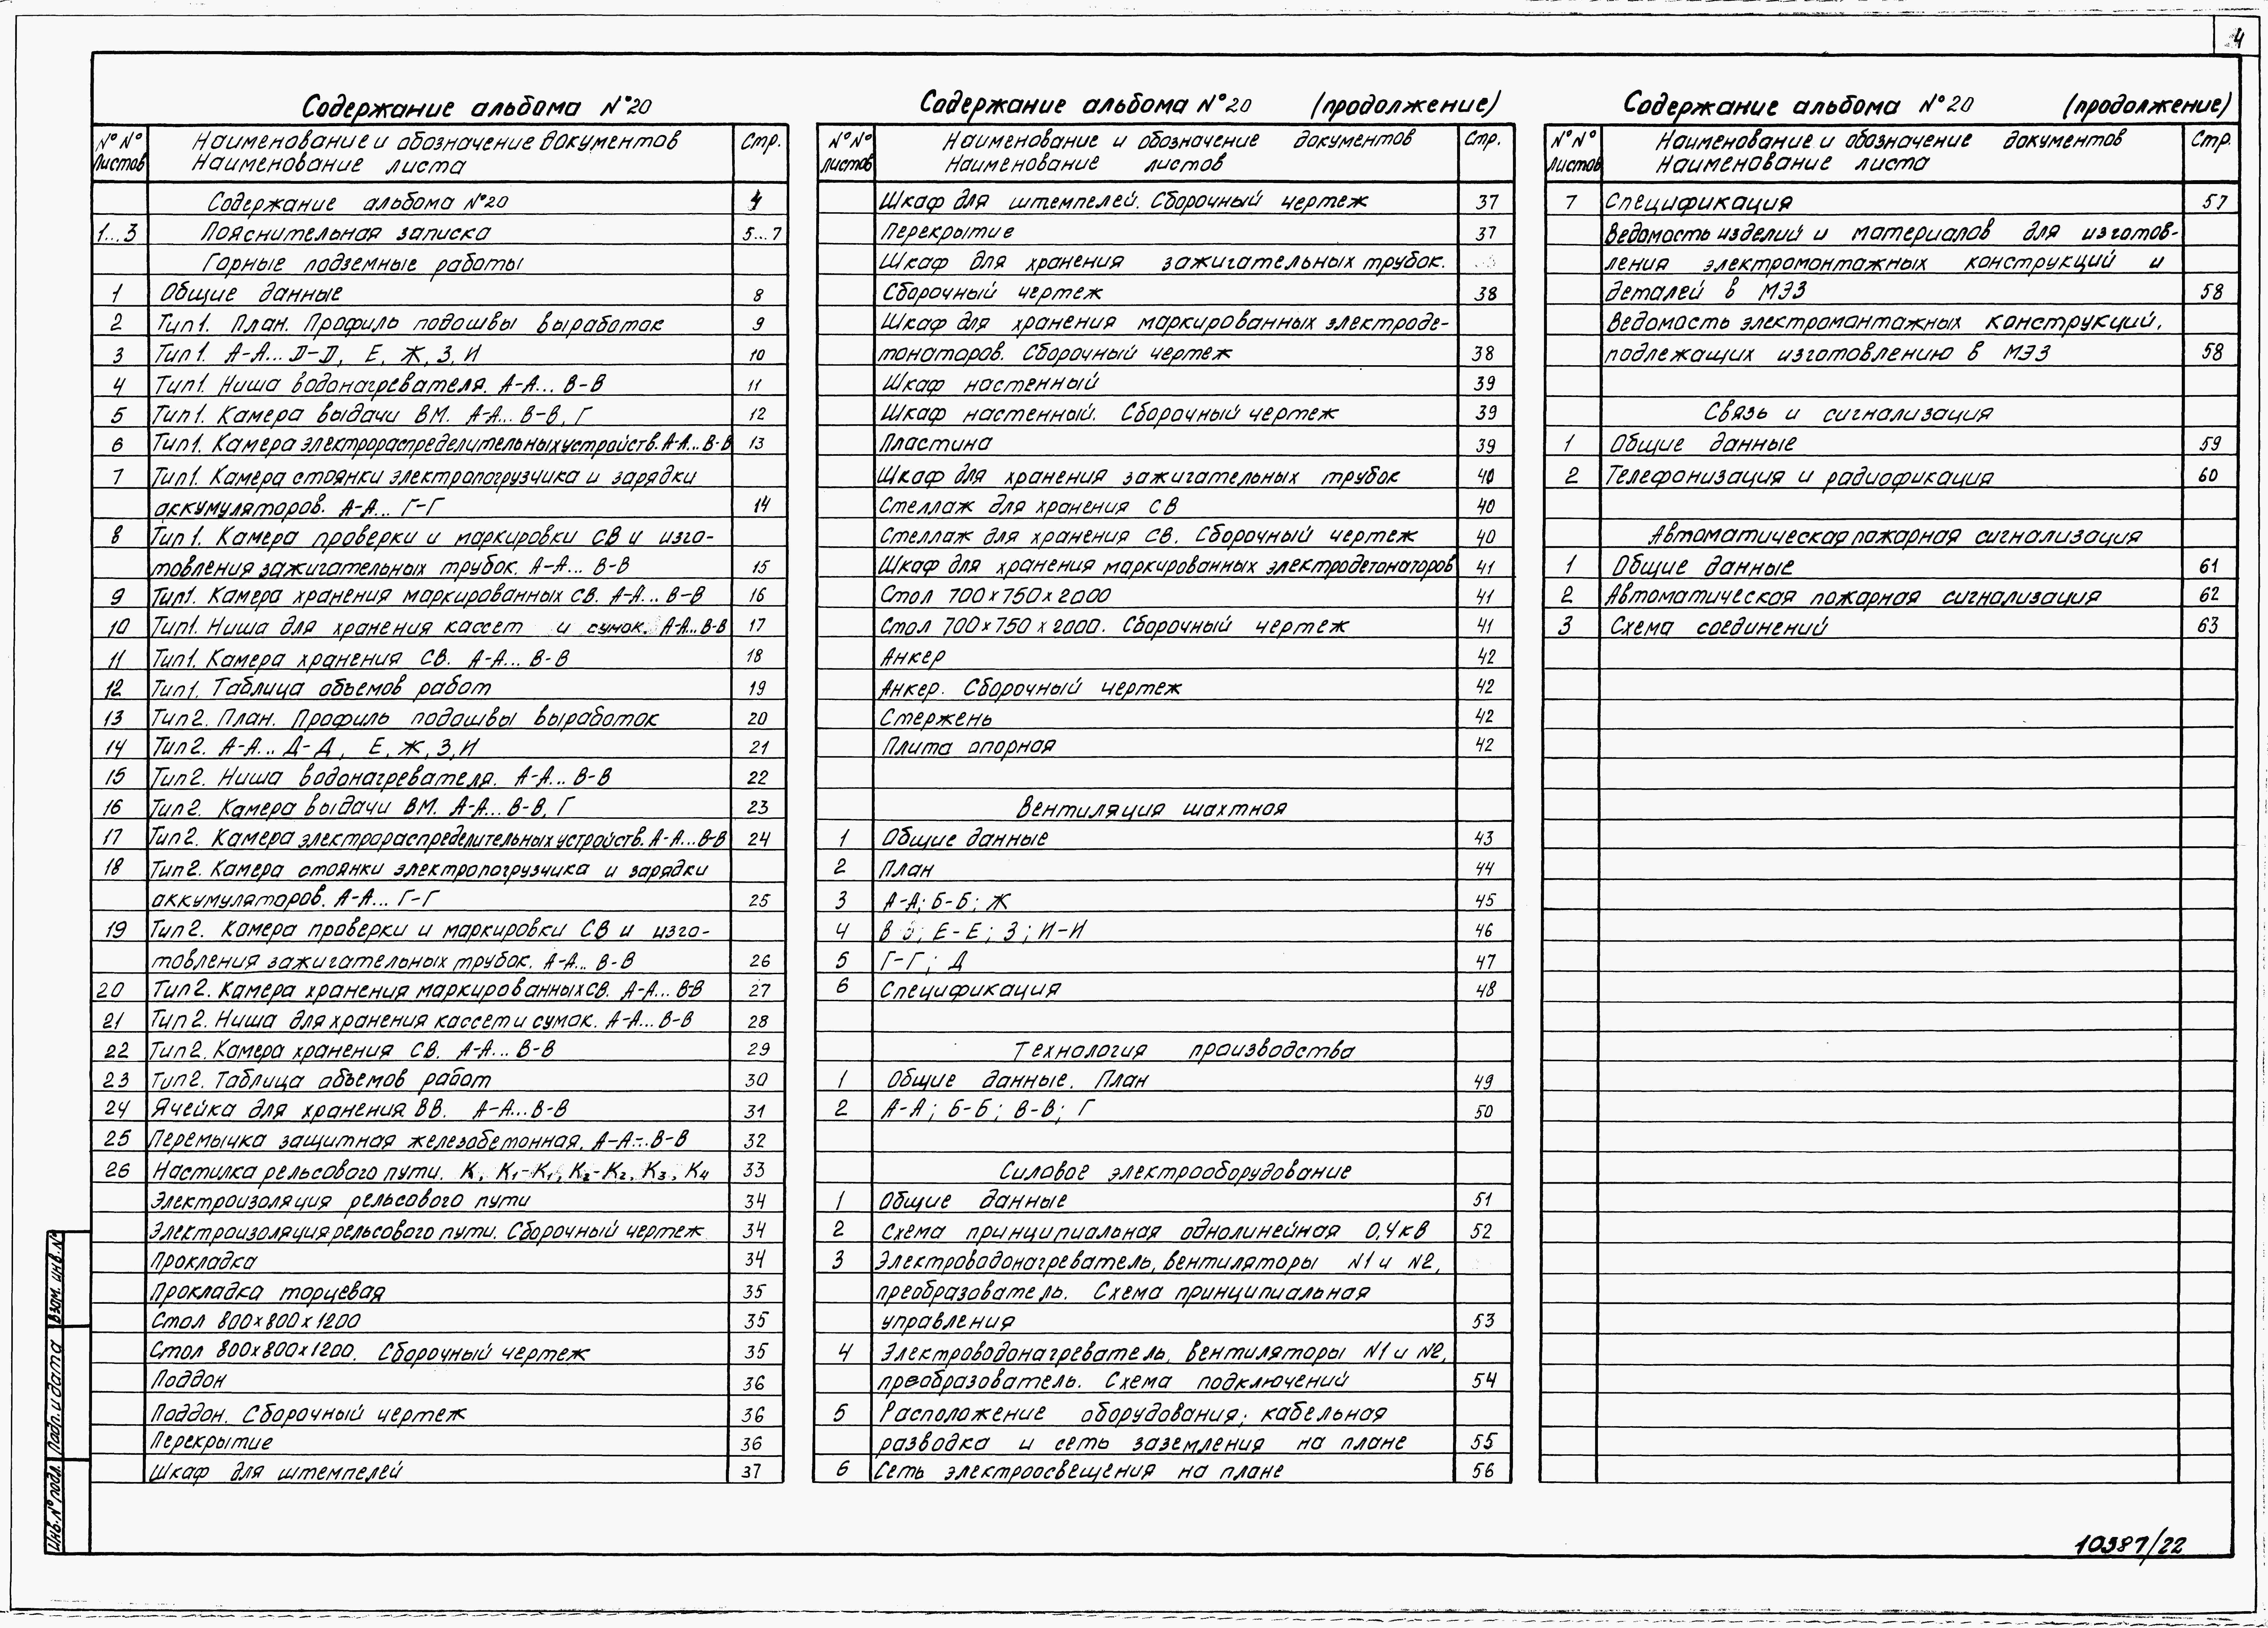 4
Содержание альбома №20
№№ листов Наименование и обозначение документов Наименование листа Стр.
Содержание альбома №20 4
1...3 Пояснительная записка 5...7
Горные подземные работы
1 Общие данные 8
2 Тип1. План. Профиль подошвы выработок 9
3 Тип1. А-А... Д-Д, Е, Ж, З, И 10
4 Тип1. Ниша водонагревателя. А-А... В-В 11
5 Тип1. Камера выдачи ВМ. А-А... В-В, Г 12
6 Тип1. Камера электрораспределительных устройств. А-А... В-В 13
7 Тип1. Камера стоянки электропогрузчика и зарядки
аккумуляторов. А-А... Г-Г 14
8 Тип1. Камера проверки и маркировки СВ и изго-
товления зажигательных трубок. А-А... В-В 15
9 Тип1. Камера хранения маркированных СВ. А-А... В-В 16
10 Тип1. Ниша для хранения кассет и сумок. А-А... В-В 17
11 Тип1. Камера хранения СВ. А-А... В-В 18
12 Тип1. Таблица объемов работ 19
13 Тип2. План. Профиль подошвы выработок 20
14 Тип2. А-А... Д-Д, Е, Ж, З, И 21
15 Тип2. Ниша водонагревателя. А-А... В-В 22
16 Тип2. Камера выдачи ВМ. А-А... В-В, Г 23
17 Тип2. Камера электрораспределительных устройств. А-А... В-В 24
18 Тип2. Камера стоянки электропогрузчика и зарядки
аккумуляторов. А-А... Г-Г 25
19 Тип2. Камера проверки и маркировки СВ и изго-
товления зажигательных трубок. А-А... В-В 26
20 Тип2. Камера хранения маркированных СВ. А-А... В-В 27
21 Тип2. Ниша для хранения кассет и сумок. А-А... В-В 28
22 Тип2. Камера хранения СВ. А-А... В-В 29
23 Тип2. Таблица объемов работ 30
24 Ячейка для хранения ВВ. А-А... В-В 31
25 Перемычка защитная железобетонная. А-А... В-В 32
26 Настилка рельсового пути. К, К1-К1, К2-К2, К3, К4 33
Электроизоляция рельсового пути 34
Электроизоляция рельсового пути. Сборочный чертеж 34
Прокладка 34
Прокладка торцевая 35
Стол 800×800×1200 35
Стол 800×800×1200. Сборочный чертеж 35
Поддон 36
Поддон. Сборочный чертеж 36
Перекрытие 36
Шкаф для штемпелей 37
Содержание альбома №20 (продолжение)
№№ листов Наименование и обозначение документов Наименование листов Стр.
Шкаф для штемпелей. Сборочный чертеж 37
Перекрытие 37
Шкаф для хранения зажигательных трубок.
Сборочный чертеж 38
Шкаф для хранения маркированных электроде-
тонаторов. Сборочный чертеж 38
Шкаф настенный 39
Шкаф настенный. Сборочный чертеж 39
Пластина 39
Шкаф для хранения зажигательных трубок 40
Стеллаж для хранения СВ 40
Стеллаж для хранения СВ. Сборочный чертеж 40
Шкаф для хранения маркированных электродетонаторов 41
Стол 700×750×2000 41
Стол 700×750×2000. Сборочный чертеж 41
Анкер 42
Анкер. Сборочный чертеж 42
Стержень 42
Плита опорная 42
Вентиляция шахтная
1 Общие данные 43
2 План 44
3 А-А; Б-Б; Ж 45
4 В ; Е-Е; З; И-И 46
5 Г-Г; Д 47
6 Спецификация 48
Технология производства
1 Общие данные. План 49
2 А-А; Б-Б; В-В; Г 50
Силовое электрооборудование
1 Общие данные 51
2 Схема принципиальная однолинейная 0,4кВ 52
3 Электроводонагреватель, вентиляторы N1 и N2,
преобразователь. Схема принципиальная
управления 53
4 Электроводонагреватель, вентиляторы N1 и N2,
преобразователь. Схема подключений 54
5 Расположение оборудования; кабельная
разводка и сеть заземления на плане 55
6 Сеть электроосвещения на плане 56
Содержание альбома №20 (продолжение)
№№ листов Наименование и обозначение документов Наименование листа Стр.
7 Спецификация 57
Ведомость изделий и материалов для изготов-
ления электромонтажных конструкций и
деталей в МЭЗ 58
Ведомость электромонтажных конструкций,
подлежащих изготовлению в МЭЗ 58
Связь и сигнализация
1 Общие данные 59
2 Телефонизация и радиофикация 60
Автоматическая пожарная сигнализация
1 Общие данные 61
2 Автоматическая пожарная сигнализация 62
3 Схема соединений 63
Инв.№ подл. Подп. и дата Взам. инв.№
10387/22